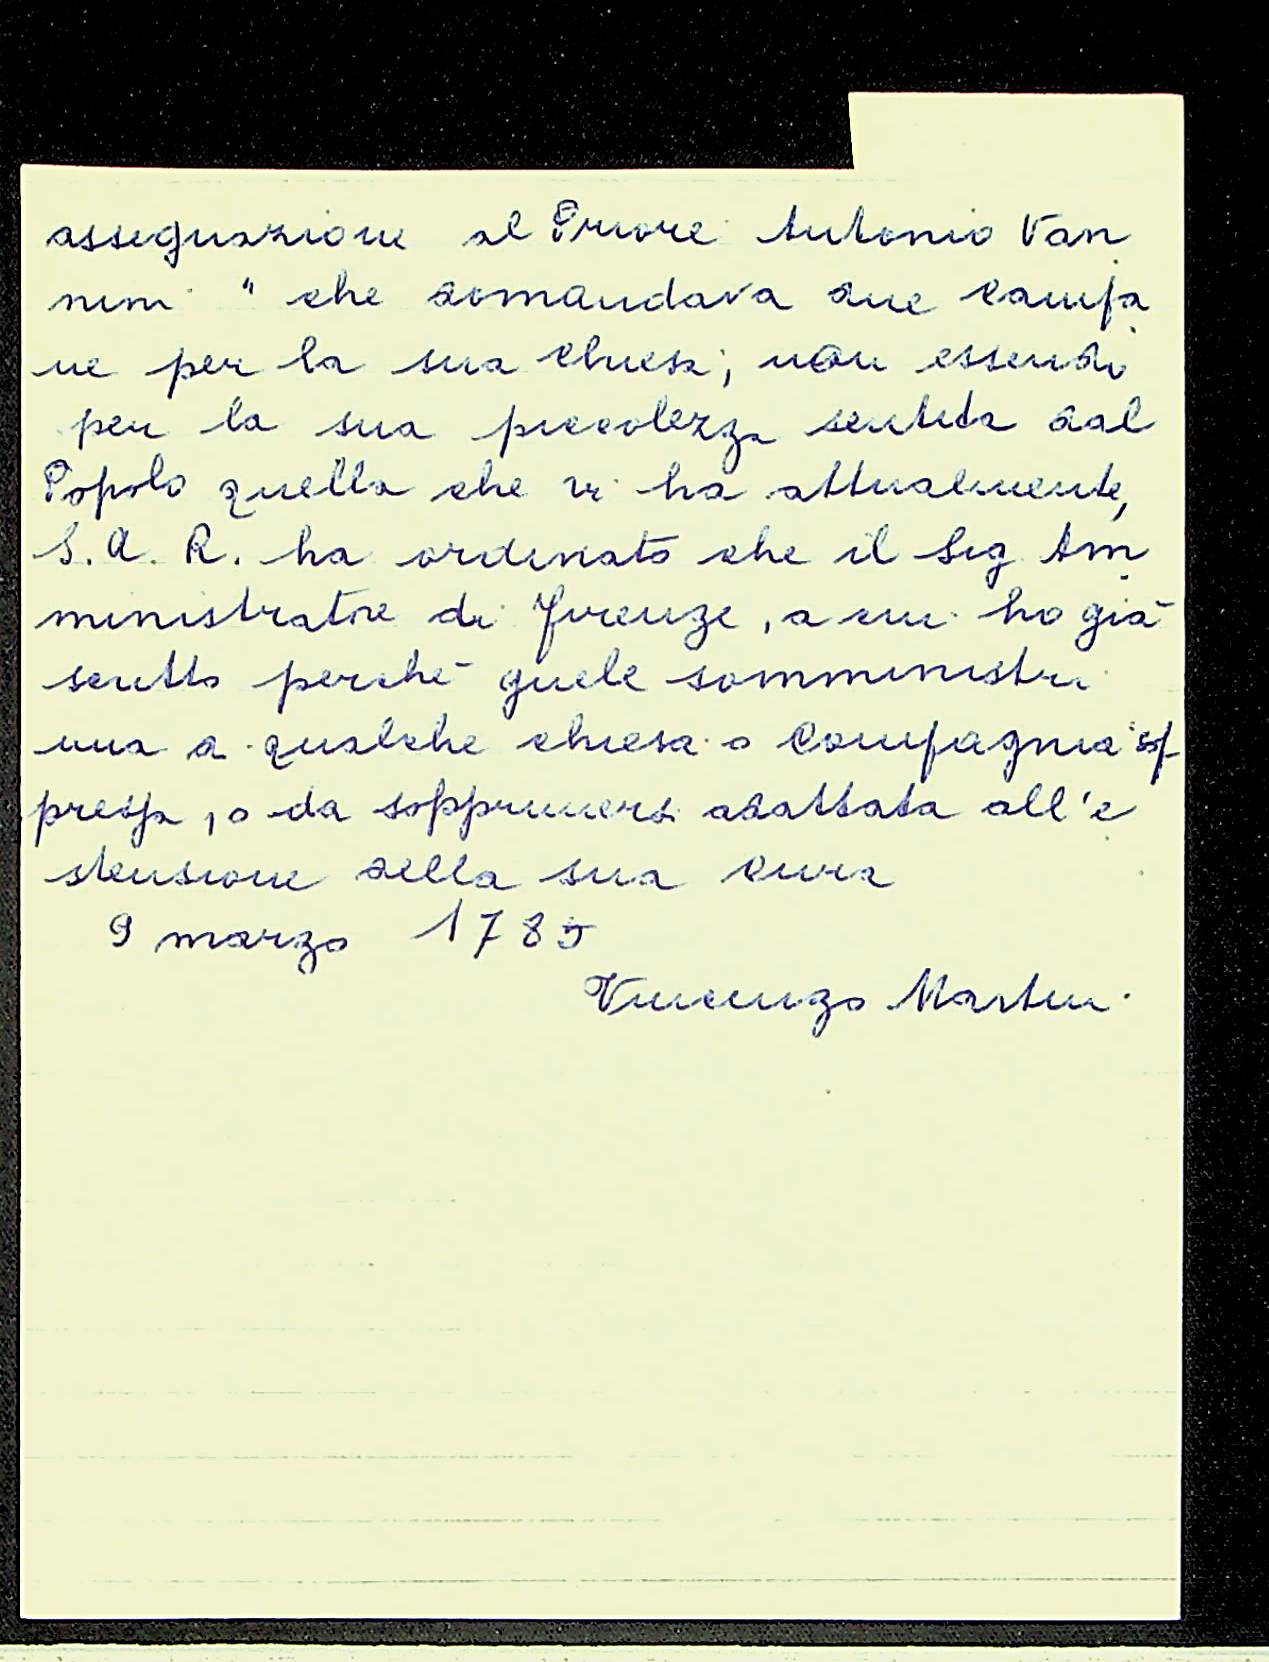 assegnazione al Priore Antonio Van
nini " che domandava due campa
ne per la sua chiesa; non essendo
per la sua piccolezza sentita dal
Popolo quella che vi ha attualmente,
S. A. R. ha ordinato che il Sig Am
ministratore di Firenze, a cui ho già
scritto perché gliele somministri
una a qualche chiesa o Compagnia sop
pressa, o da sopprimersi adattata all'e
stensione della sua cura
9 marzo 1785
Vincenzo Martini